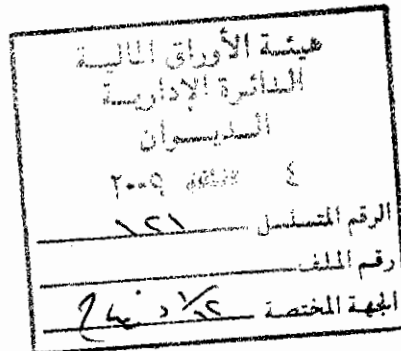 هيئة الأوراق المالية
الدائرة الإدارية
الديوان
٤ ٢٠٠٩
الرقم المتسلسل ١٢١
رقم الملف
الجهة المختصة